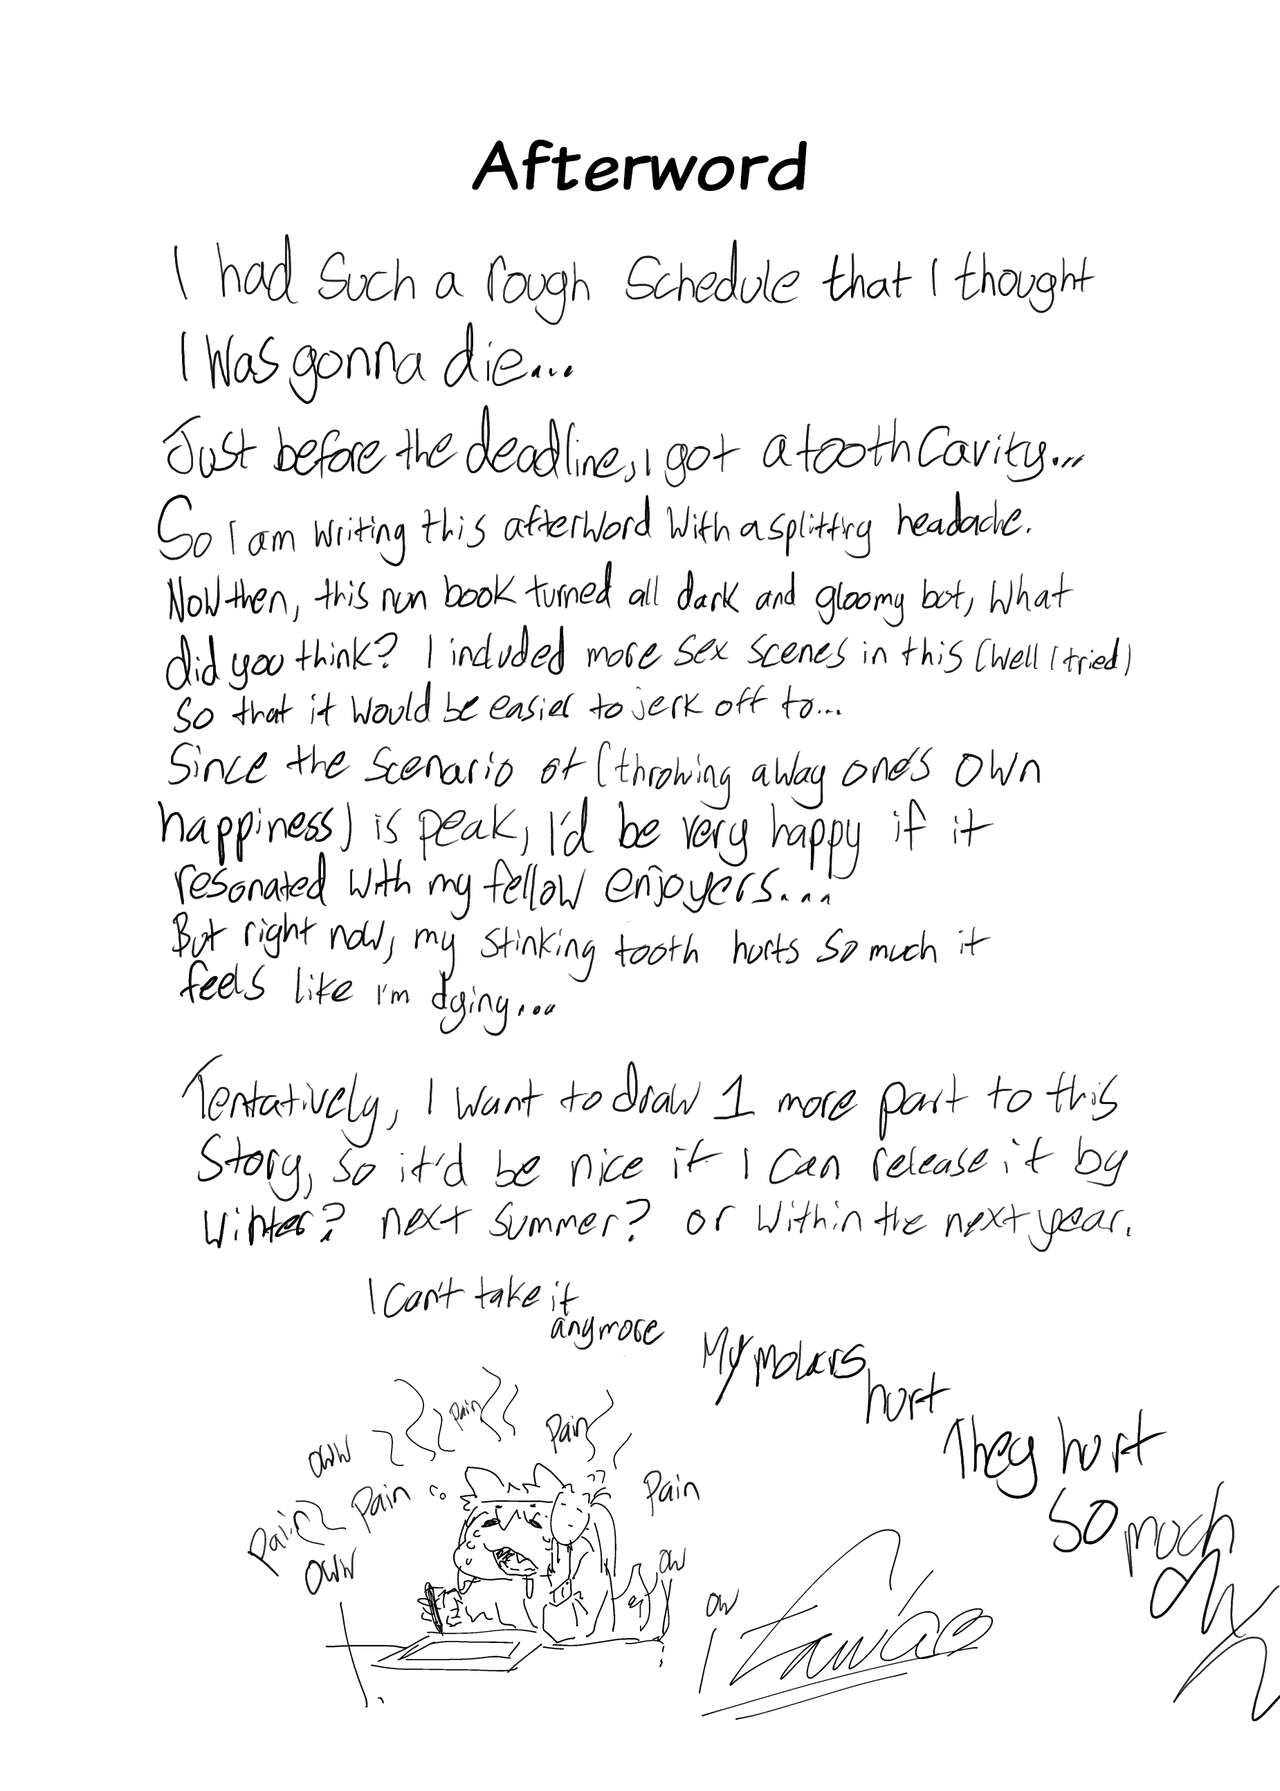 Afterword
I had such a rough schedule that I thought
I was gonna die...
Just before the deadline, I got a tooth cavity...
So I am writing this afterword with a splitting headache.
Now then, this nun book turned all dark and gloomy bot, what
did you think? I included more sex scenes in this (well I tried)
so that it would be easier to jerk off to...
Since the scenario of (throwing away one's own
happiness) is peak, I'd be very happy if it
resonated with my fellow enjoyers...
But right now, my stinking tooth hurts so much it
feels like I'm dying...
Tentatively, I want to draw 1 more part to this
Story, so it'd be nice if I can release it by
winter? next summer? or within the next year.
I can't take it
anymore
My molars
hurt
They hurt
so much
oww
Pain
Pain
oww
Pain
Pain
Pain
oww
ow
ow